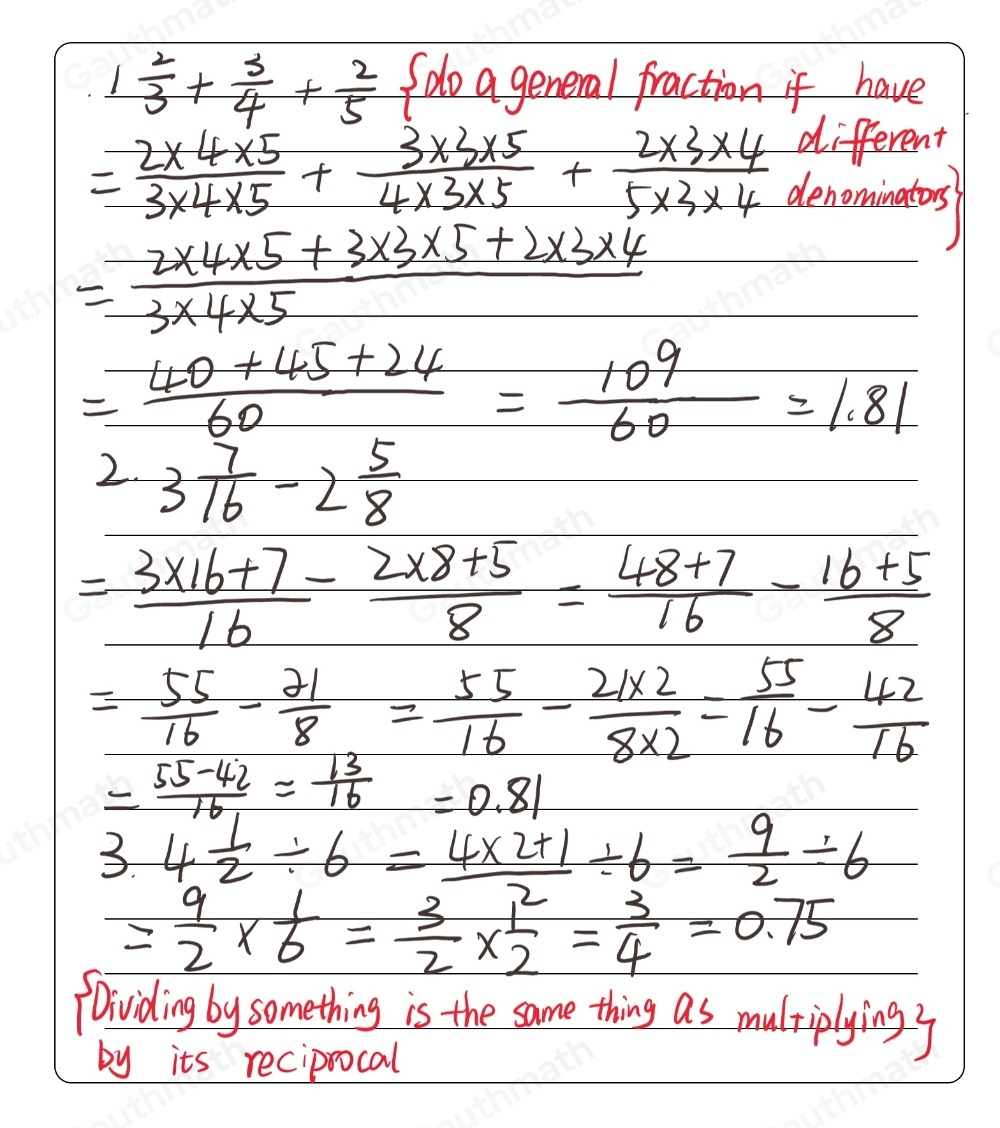 1 2/3 + 3/4 + 2/5 {do a general fraction if have
different
= 2×4×5/3×4×5 + 3×3×5/4×3×5 + 2×3×4/5×3×4 denominators}
= 2×4×5 + 3×3×5 + 2×3×4/3×4×5
= 40+45+24/60 = 109/60 = 1.81
2. 3 7/16 - 2 5/8
= 3×16+7/16 - 2×8+5/8 = 48+7/16 - 16+5/8
= 55/16 - 21/8 = 55/16 - 21×2/8×2 = 55/16 - 42/16
= 55-42/16 = 13/16 = 0.81
3. 4 1/2 ÷ 6 = 4×2+1/2 ÷ 6 = 9/2 ÷ 6
= 9/2 × 1/6 = 3/2 × 1/2 = 3/4 = 0.75
{Dividing by something is the same thing as multiplying}
by its reciprocal
Gauthmath